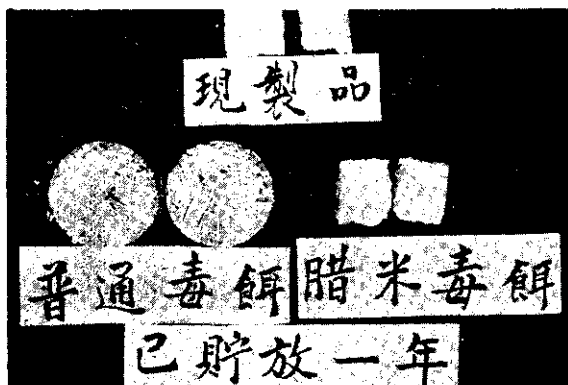 現製品
普通毒餌 腊米毒餌
已貯放一年